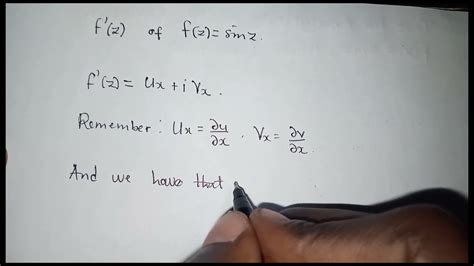 f'(z) of f(z)= sinz.
f'(z) = Ux + i Vx .
Remember : Ux = ∂u/∂x . Vx = ∂v/∂x
And we have that